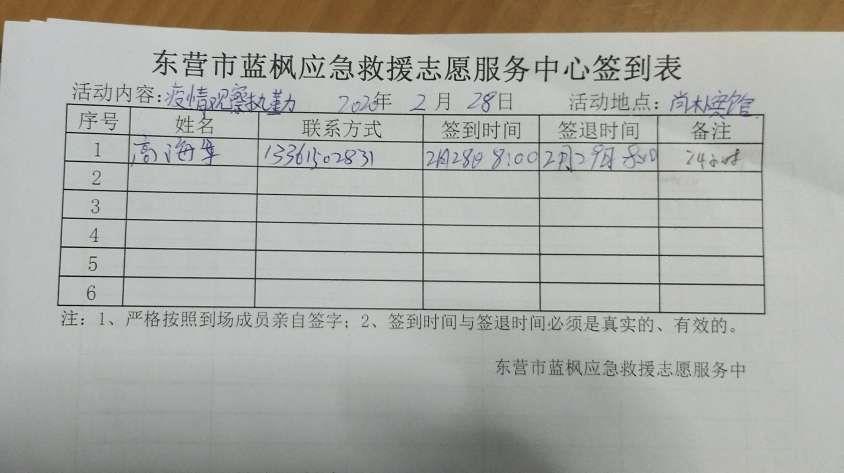 东营市蓝枫应急救援志愿服务中心签到表
活动内容:疫情观察执勤 2020年 2月 28日 活动地点:尚朴宾馆
序号 姓名 联系方式 签到时间 签退时间 备注
1 高海 13361502831 2月28日 8:00 2月29日 8:00 24小时
2
3
4
5
6
注:1、严格按照到场成员亲自签字;2、签到时间与签退时间必须是真实的、有效的。
东营市蓝枫应急救援志愿服务中